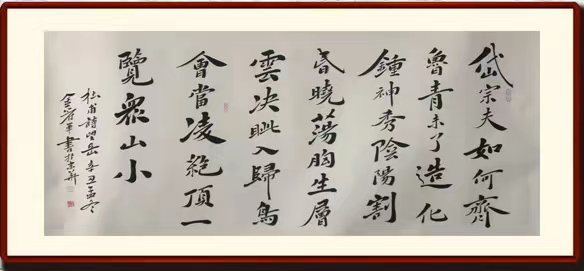 岱宗夫如何齊
魯青未了造化
鍾神秀陰陽割
昏曉蕩胸生層
雲決眦入歸鳥
會當凌絶頂一
覽衆山小
杜甫詩望岳辛丑孟冬
書於